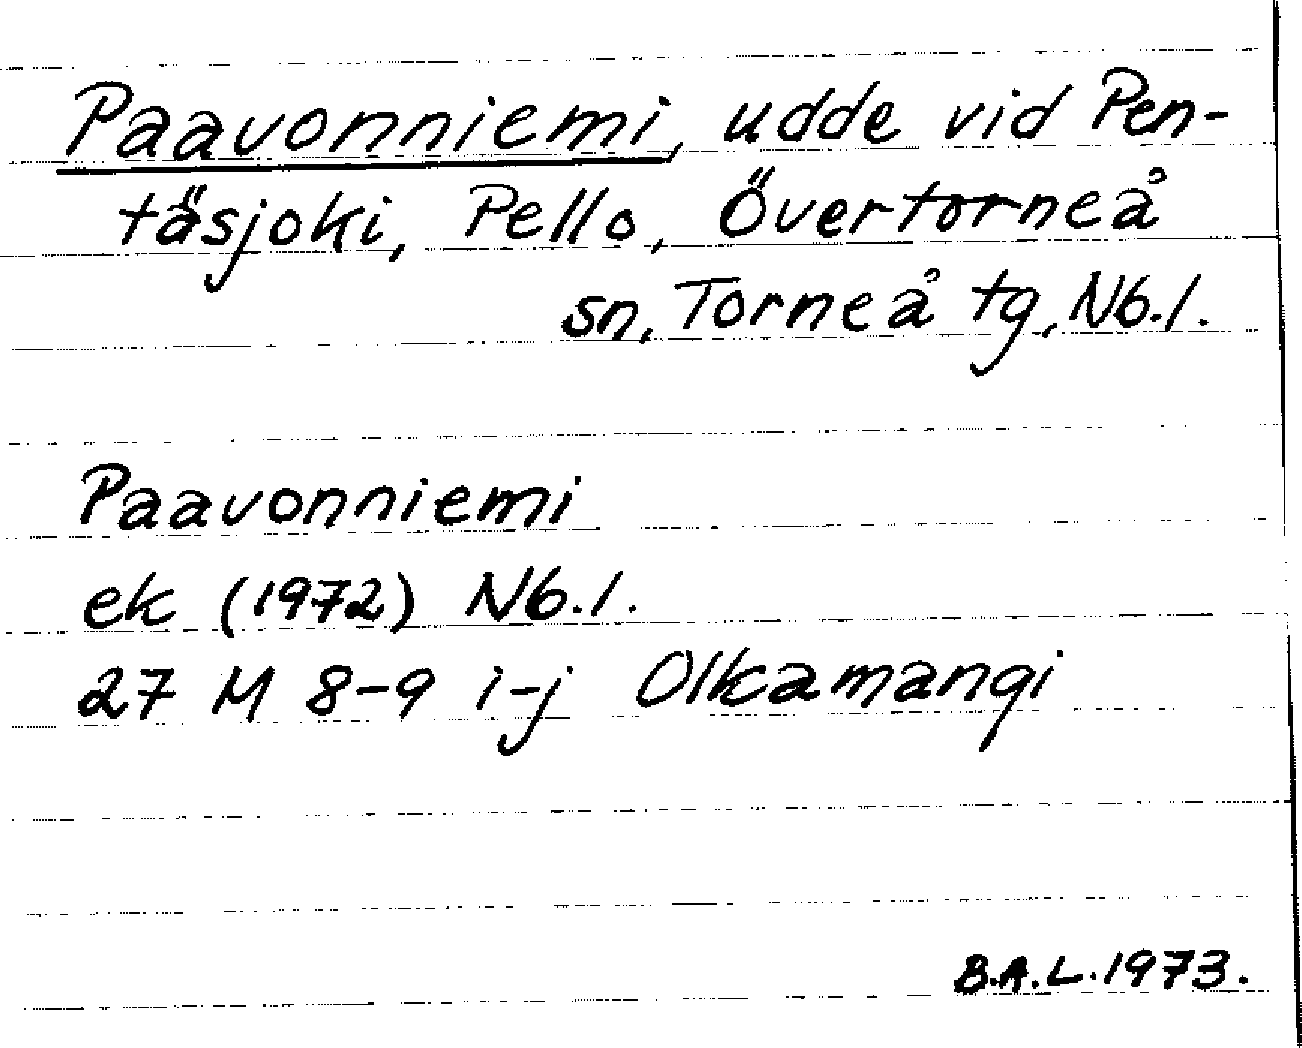 Paavonniemi, udde vid Pen-
täsjoki, Pello, Övertorneå
sn, Torneå tg, Nb. l.
Paavonniemi
ek (1972) Nb. l.
27 M 8-9 i-j Olkamangi
B.A.L. 1973.